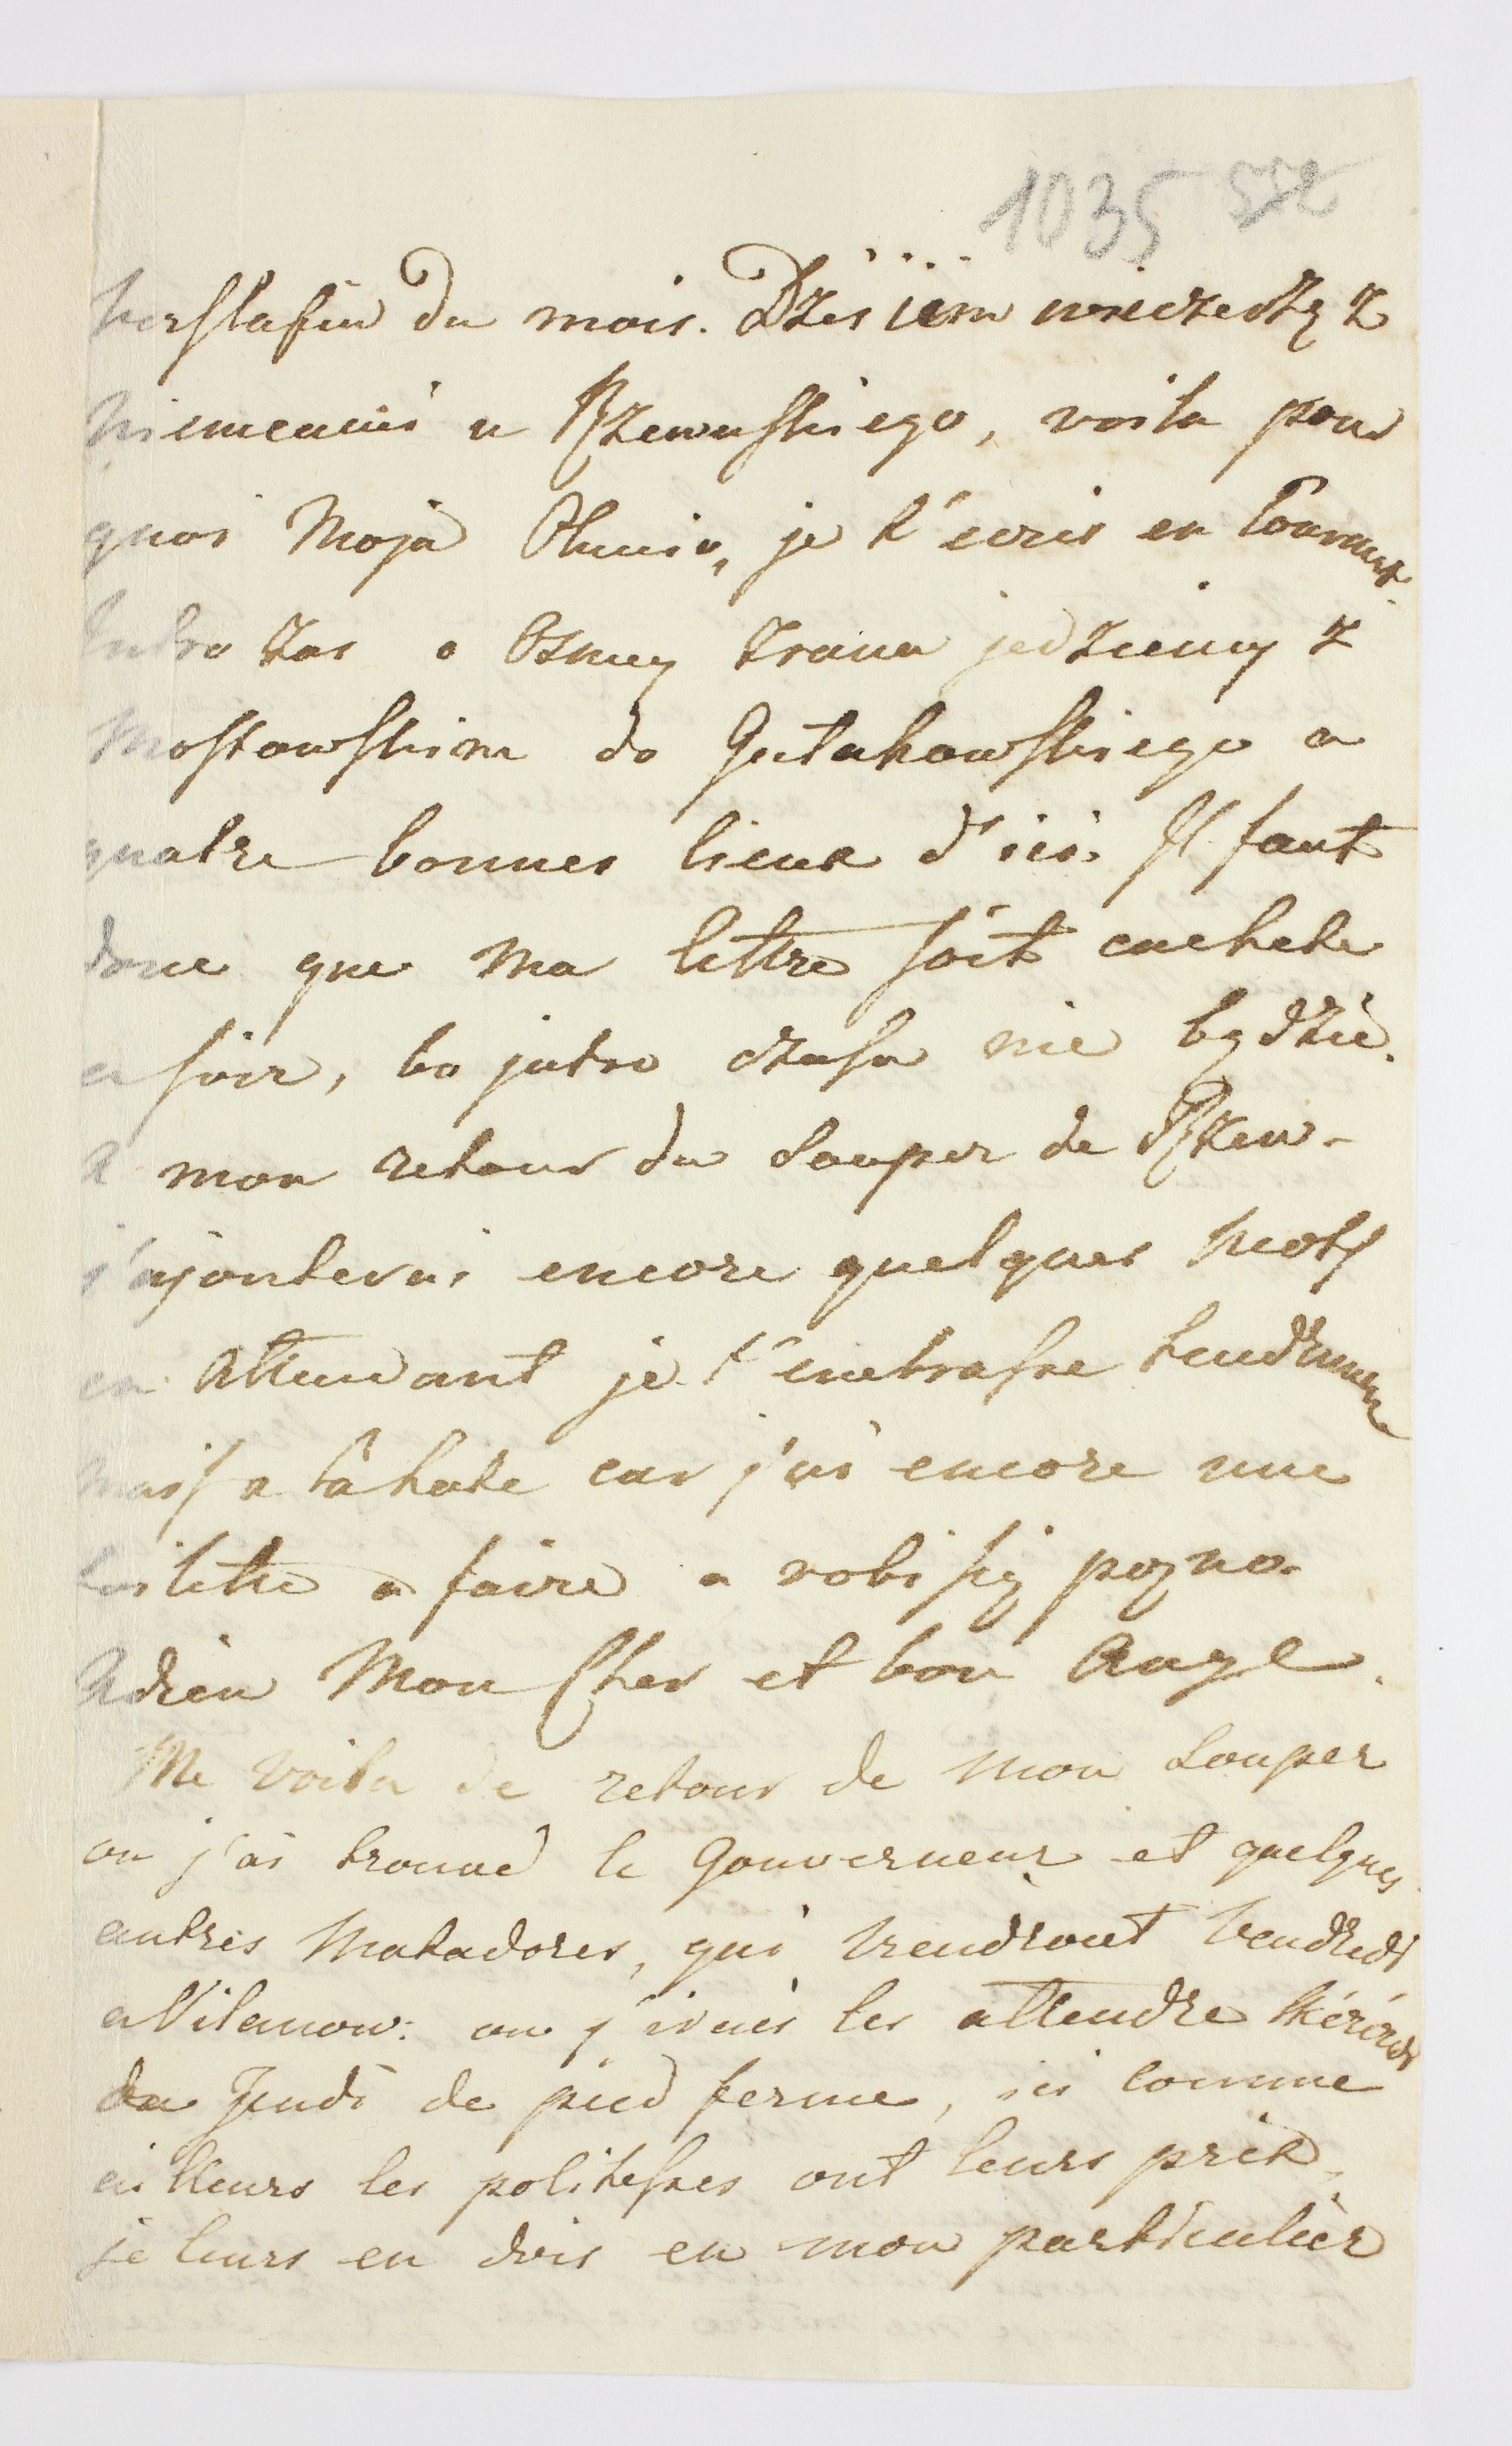 1035 552
vers la fin du mois. Dzis iem wieczerzę z
Niemcami u Rzewuskiego, voila pour
quoi Moja Olunia, je t'ecris en Courant.
Jutro zas o Osmey zrana jedziemy z
Mostowskim do Gutakowskiego a
quatre bonnes lieux d'ici. Il faut
donc que ma lettre soit cachete
ce soir, bo jutro czasu nie będzie.
A mon retour du Souper de Rzew.
j'ajouterai encore quelques Mots
en Attendant je t'embrasse tendrement
mais a la hate car j'ai encore une
toilette a faire a robi się pozno.
Adieu Mon Cher et bon Ange.
Me Voila de retour de Mon Souper
ou j'ai trouvé le Gouverneur et quelques
autres Matadores, qui viendront Vendredi
a Vilanow: ou j'irais les attendre
Jeudi de pied ferme, ici comme
ailleurs les politesses ont leurs prix,
je leurs en dois en mon particulier